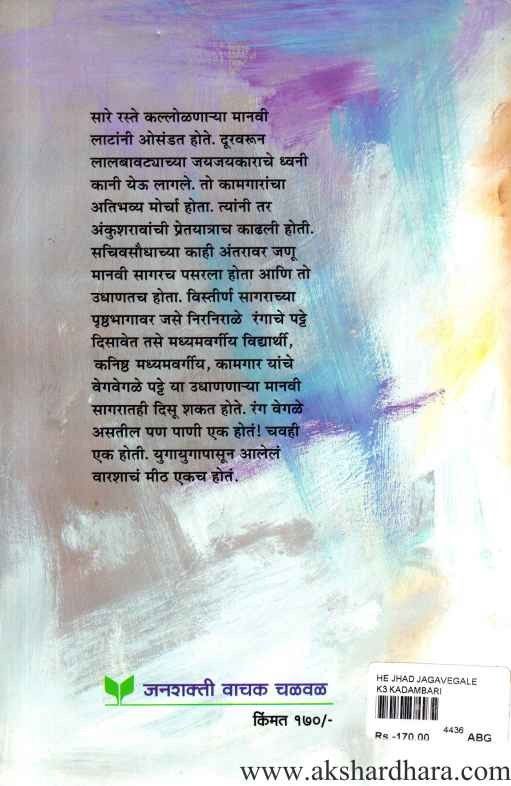 सारे रस्ते कल्लोळणाऱ्या मानवी
लाटांनी ओसंडत होते. दूरवरून
लालबावट्याच्या जयजयकाराचे ध्वनी
कानी येऊ लागले. तो कामगारांचा
अतिभव्य मोर्चा होता. त्यांनी तर
अंकुशरावांची प्रेतयात्राच काढली होती.
सचिवसौधाच्या काही अंतरावर जणू
मानवी सागरच पसरला होता आणि तो
उधाणतच होता. विस्तीर्ण सागराच्या
पृष्ठभागावर जसे निरनिराळे रंगाचे पट्टे
दिसावेत तसे मध्यमवर्गीय विद्यार्थी,
कनिष्ठ मध्यमवर्गीय, कामगार यांचे
वेगवेगळे पट्टे या उधाणणाऱ्या मानवी
सागरातही दिसू शकत होते. रंग वेगळे
असतील पण पाणी एक होतं! चवही
एक होती. युगायुगापासून आलेलं
वारशाचं मीठ एकच होतं.
जनशक्ती वाचक चळवळ
किंमत १७०/-
HE JHAD JAGAVEGALE
K3 KADAMBARI
4436
Rs.-170.00 ABG
www.akshardhara.com